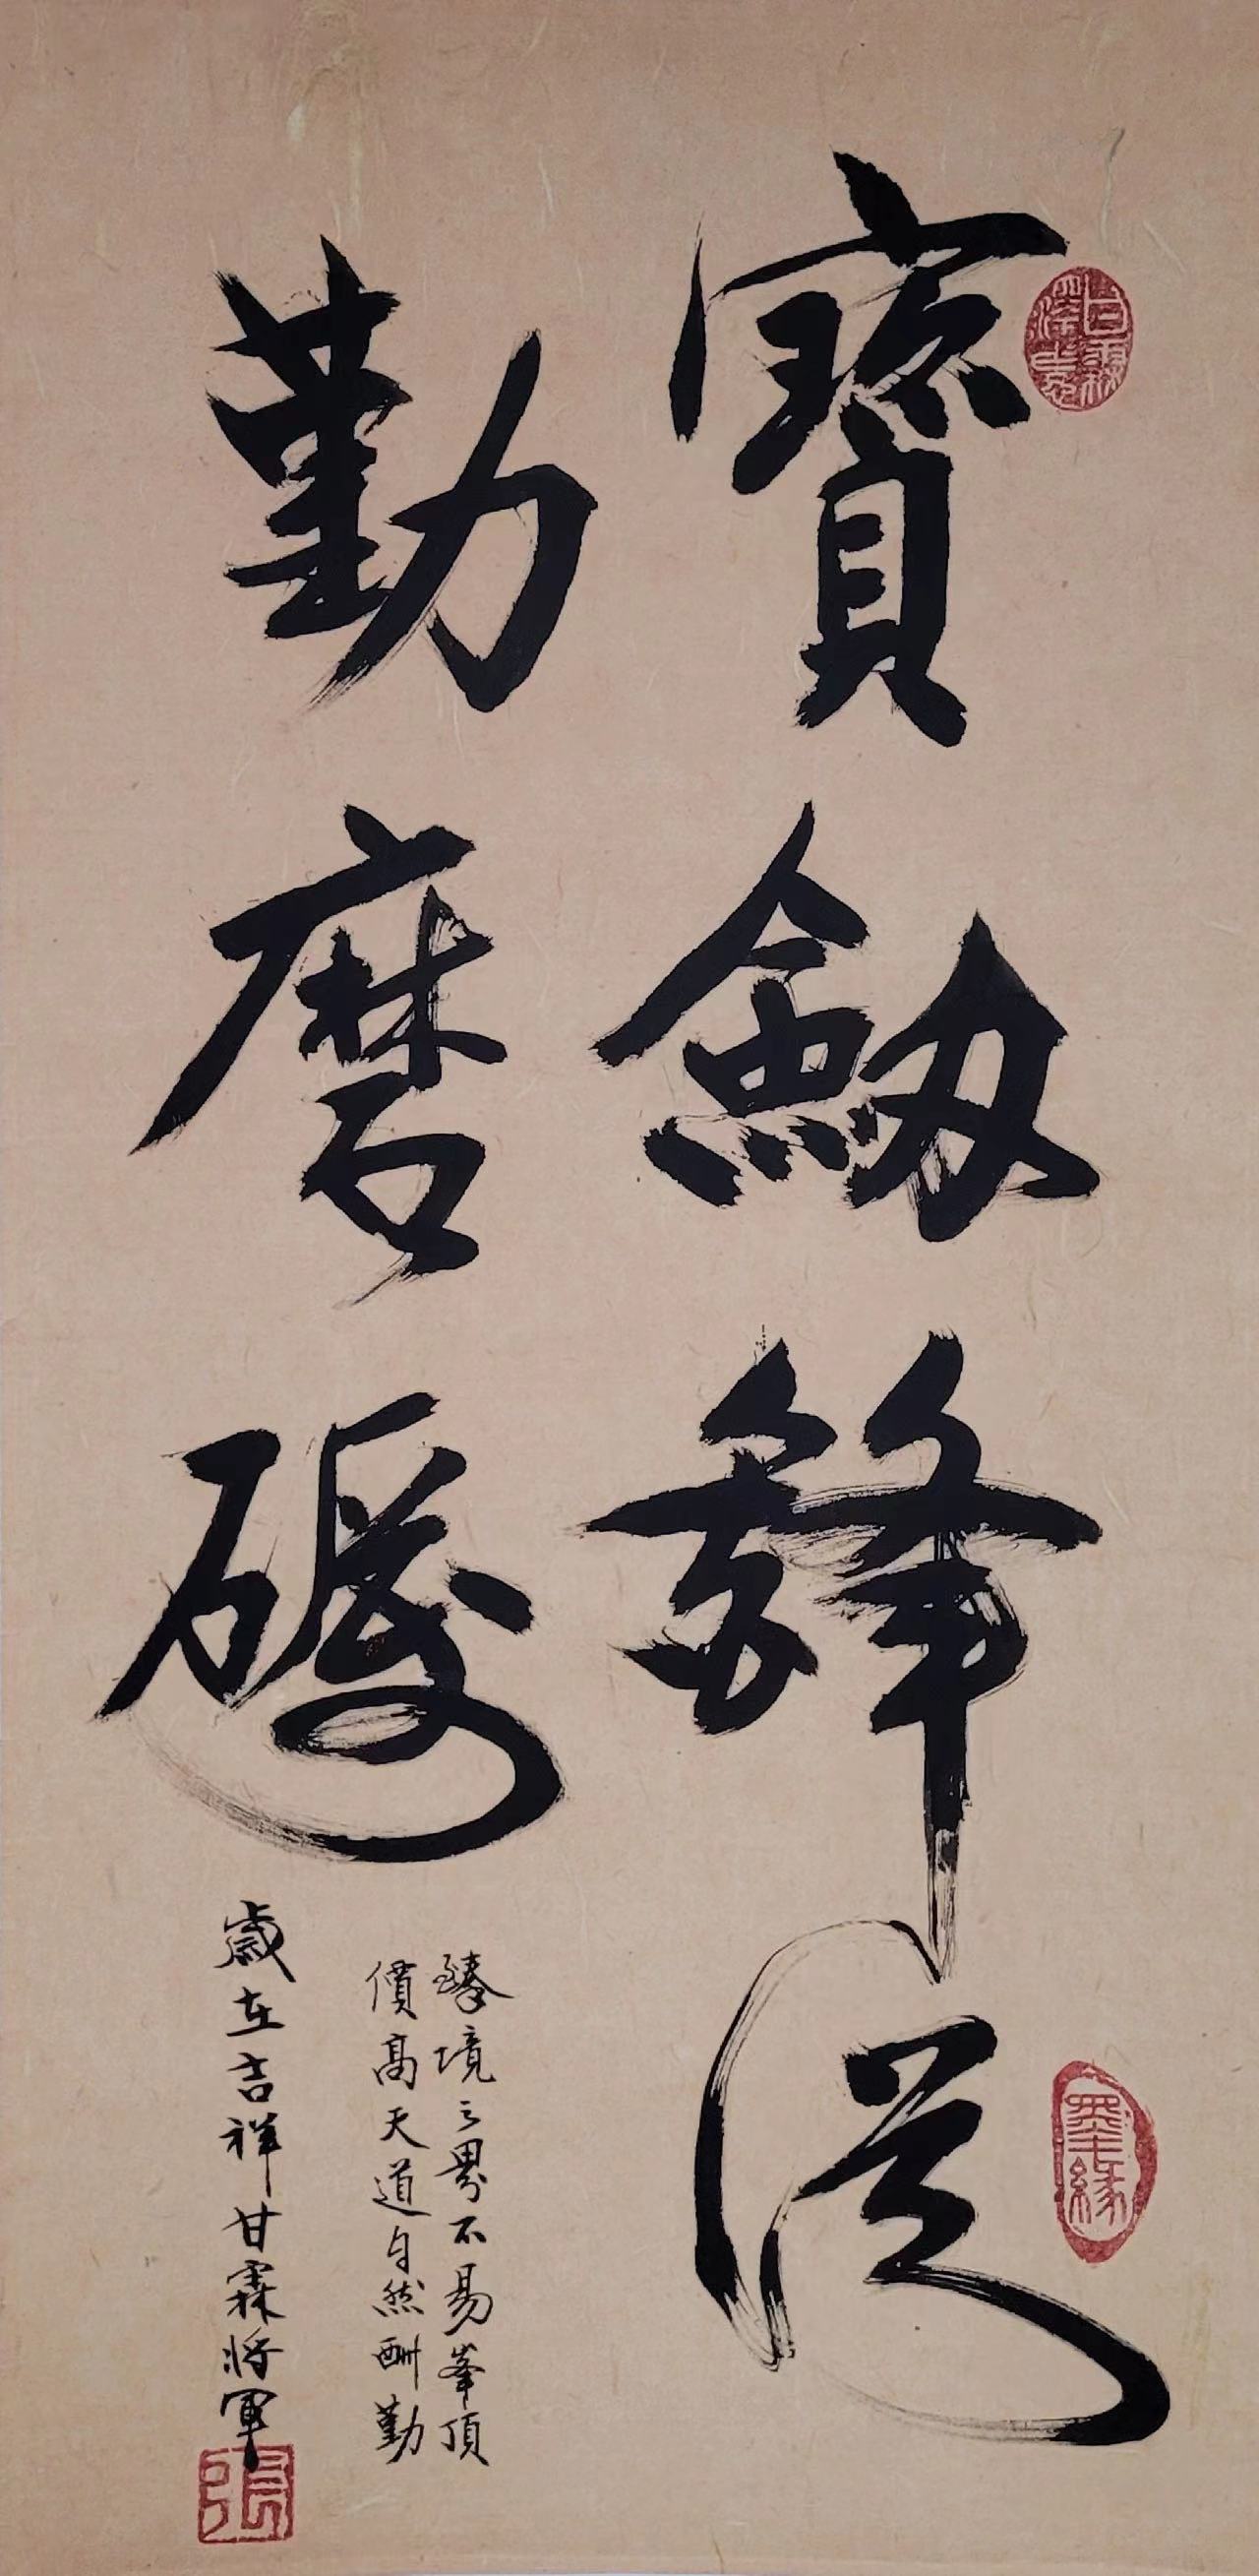 寶劍鋒從
勤磨礪
臻境之界不易峯頂
價高天道自然酬勤
歲在吉祥甘霖將軍
墨緣